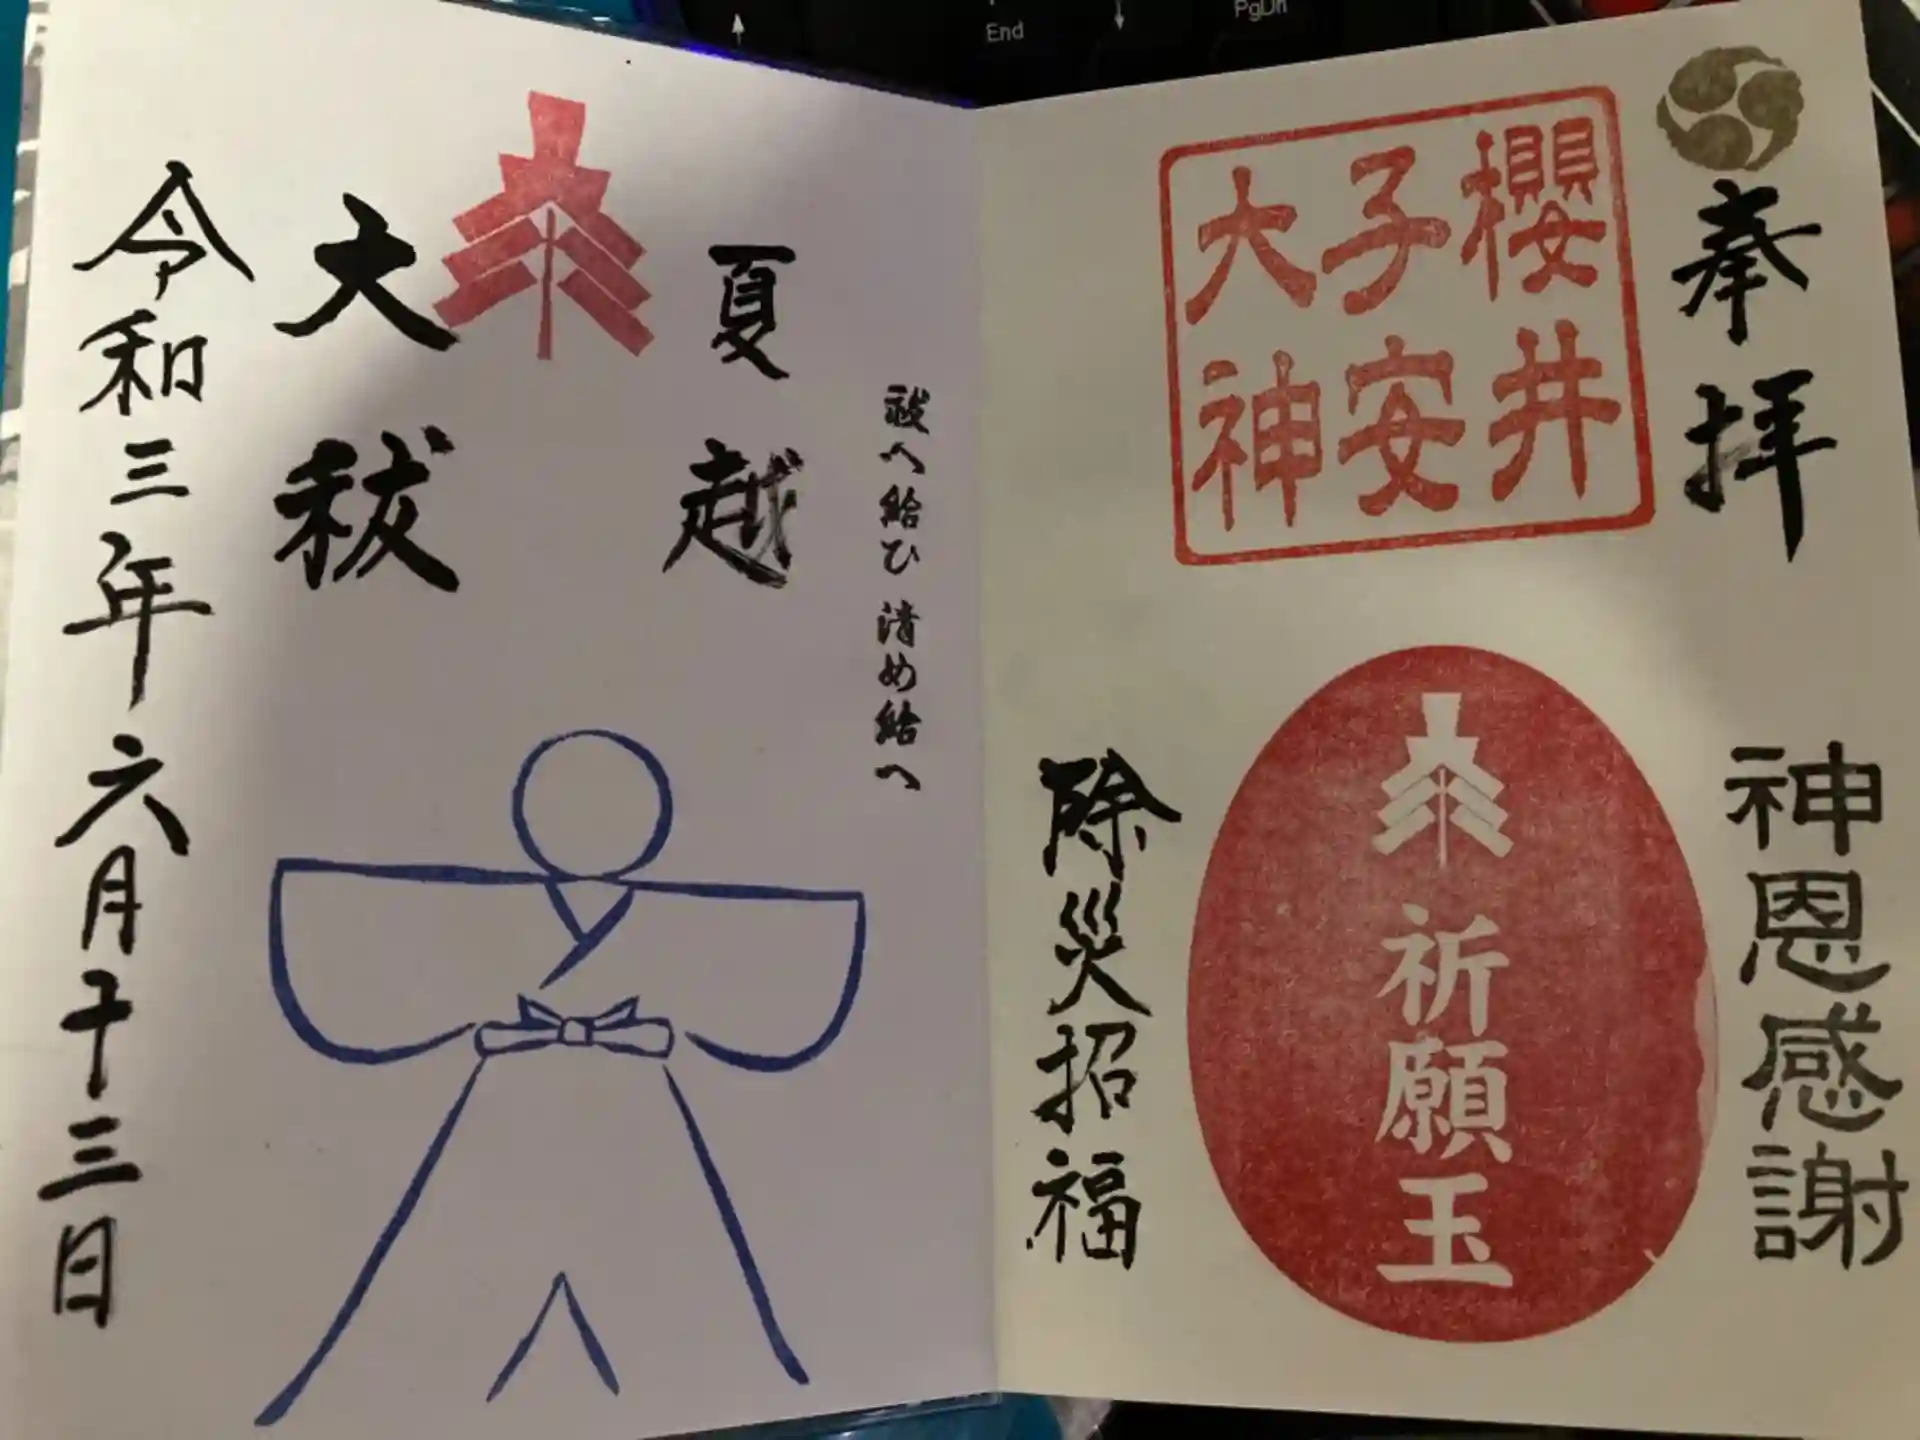 奉拝
櫻井
子安
大神
神恩感謝
祈願玉
除災招福
祓へ給ひ 清め給へ
夏越
大祓
令和三年六月十三日
End
PgDn